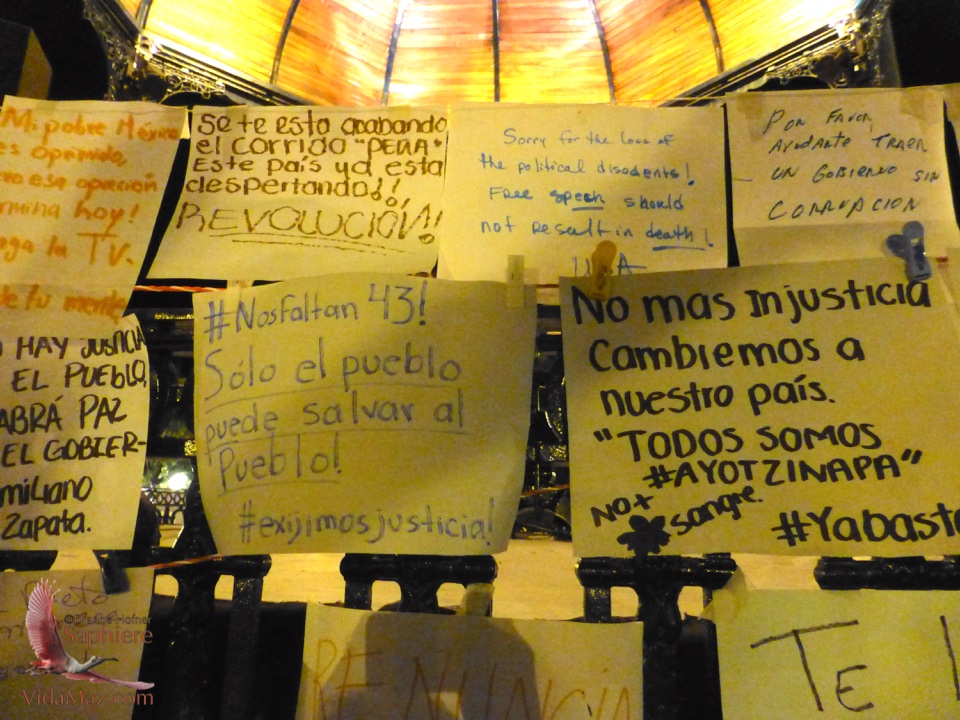 Mi pobre México
es oprimido,
ero esa opresión
ermina hoy!
aga la TV.
de tu mente
Se te esta acabando
el corrido "PEÑA"
Este país ya esta
despertando!!,
REVOLUCIÓN!
Sorry for the loss of
the political disodents!
Free speech should
not result in death!
USA
Por Favor
Ayudante Traer
un Gobierno sin
Corrupcion
O HAY JUSTICIA
EL PUEBLO,
ABRÁ PAZ
EL GOBIER-
miliano
Zapata.
#Nosfaltan 43!
Sólo el pueblo
puede salvar al
Pueblo!
#exijimosjusticia!
No mas Injusticia
Cambiemos a
nuestro país.
"TODOS SOMOS
#AYOTZINAPA"
NO+ sangre.
#Yabasta
RENUNCIA
Te
Saphiere
VidaMaz.com